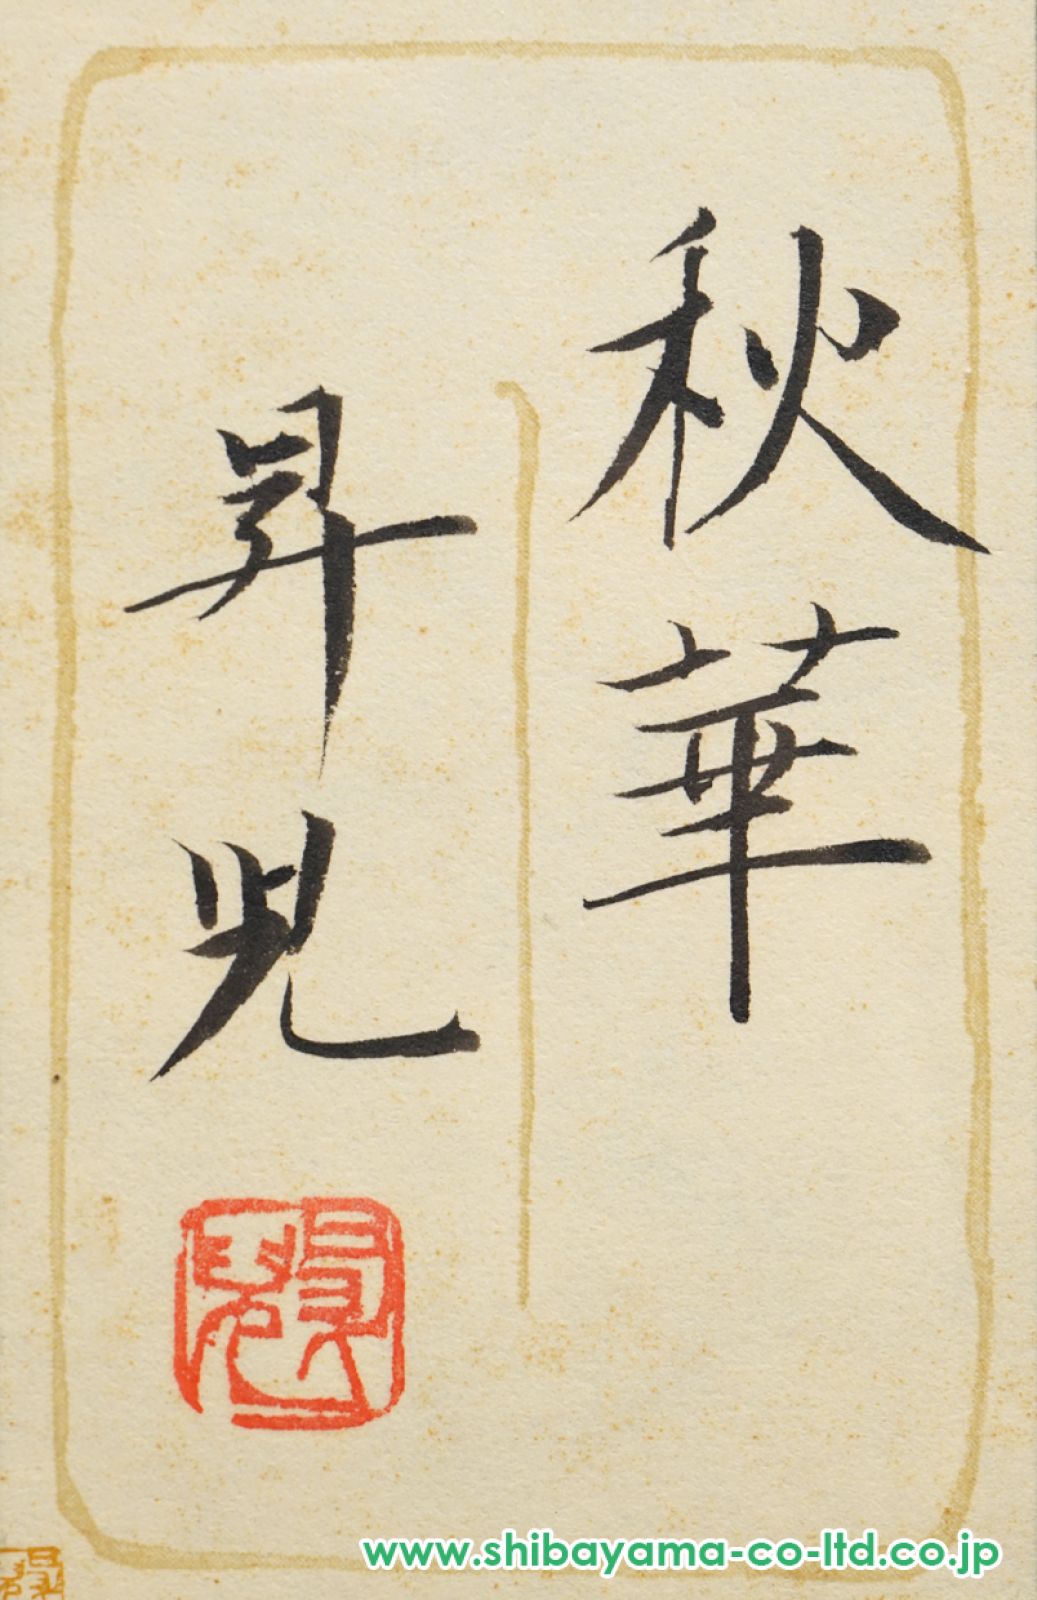 秋華
昇兒
www.shibayama-co-ltd.co.jp